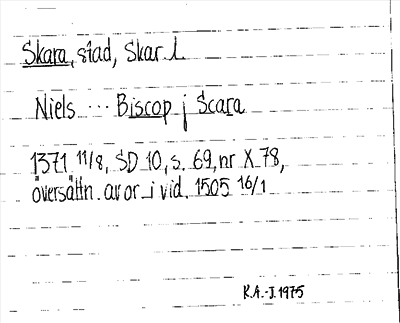 Skara, stad, Skar. l.
Niels ... Biscop j Scara
1371 11/8, SD 10, s. 69, nr X 78,
översättn. av or. i vid. 1505 16/1
R.A.-I. 1975